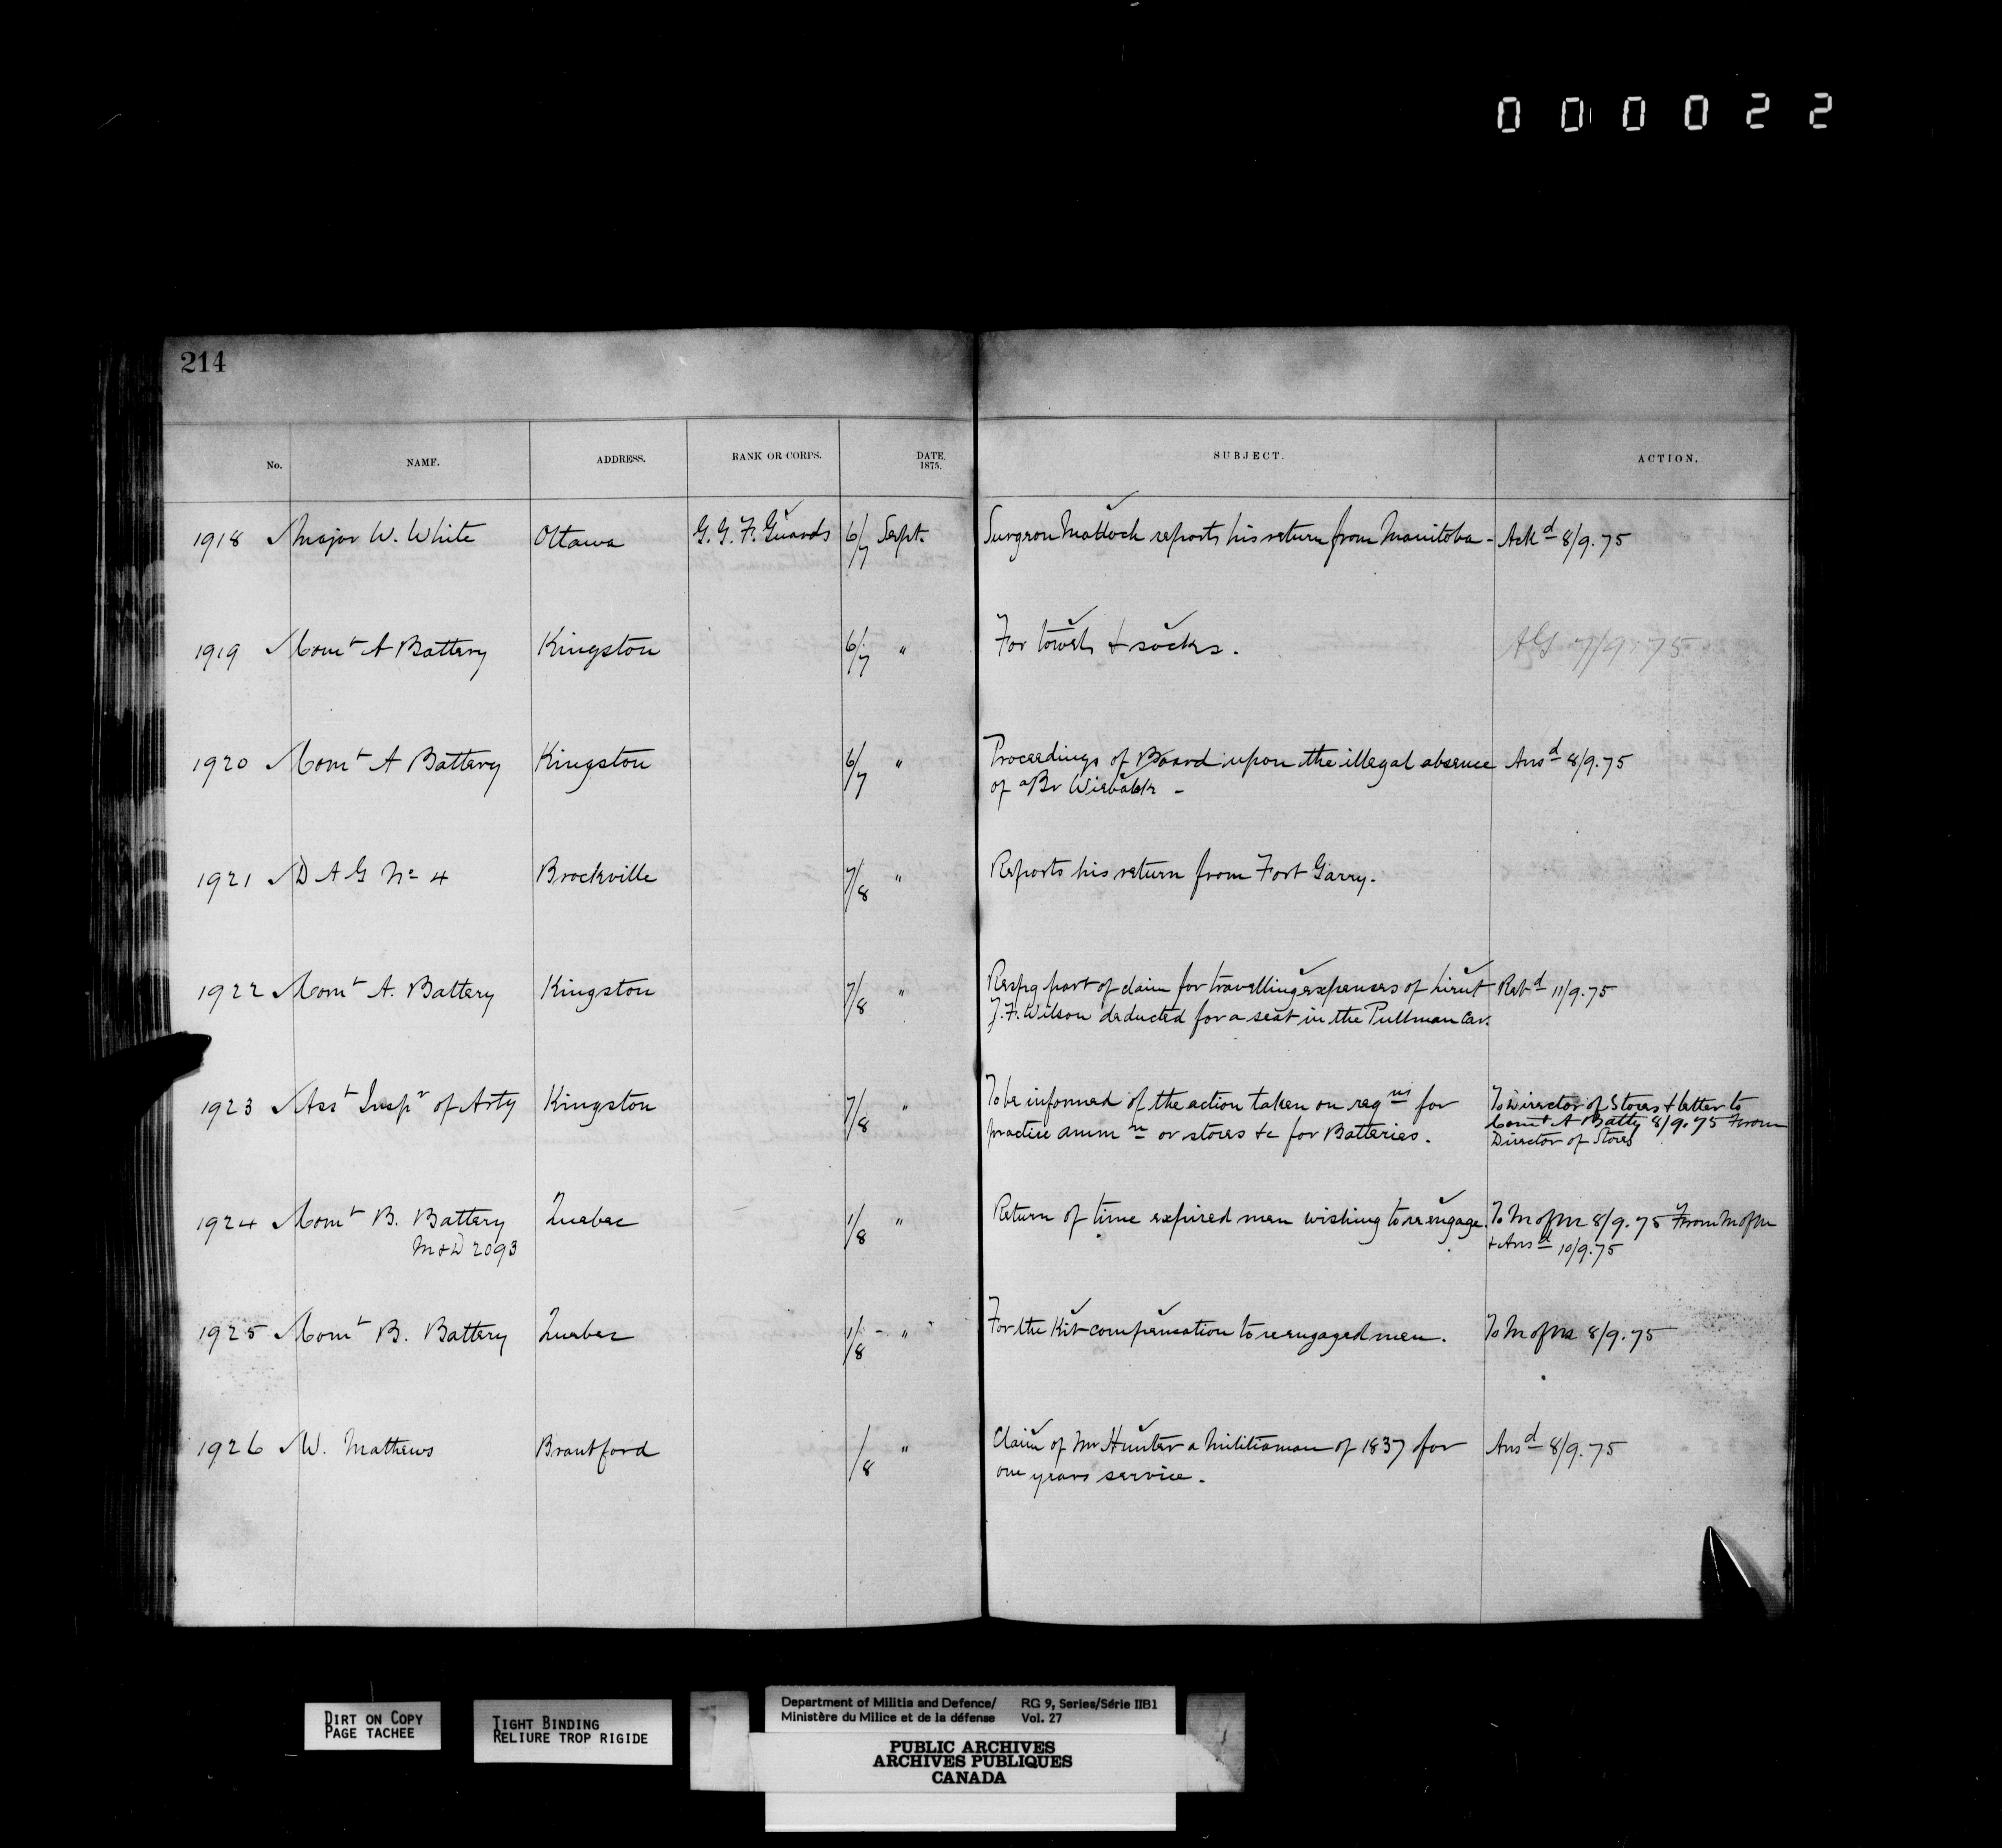 000022
214
No. NAME. ADDRESS. RANK OR CORPS. DATE. 1875. SUBJECT. ACTION.
1918 Major W. White Ottawa G. G. F. Guards 6/7 Sept. Surgeon Mattock reports his return from Manitoba - Ackd 8/9.75
1919 Comt A Battery Kingston 6/7 " For towels & socks. AG 7/9.75
1920 Comt A Battery Kingston 6/7 " Proceedings of Board upon the illegal absence Ansd 8/9.75
of a Br
1921 D A G No 4 Brockville 7/8 " Reports his return from Fort Garry.
1922 Comt A. Battery Kingston 7/8 " Respg part of claim for travelling expenses of Lieut 11/9.75
J. F. Wilson deducted for a seat in the Pullman Car.
1923 Asst Inspr of Arty Kingston 7/8 " To be informed of the action taken on reqns for To Director of Stores & letter to
practice ammn or stores &c for Batteries. Comt A Batty 8/9.75 From
Director of Stores
1924 Comt B. Battery Quebec 1/8 " Return of time expired men wishing to reengage. To M of M 8/9.75 From M of M
M&D 2093 & Ansd 10/9.75
1925 Comt B. Battery Quebec 1/8 - " For the Kit compensation to reengaged men. To M of M 8/9.75
1926 W. Mathews Brantford /8 " Claim of Mr Hunter a Militiaman of 1837 for Ansd 8/9.75
one years service.
DIRT ON COPY
PAGE TACHEE
TIGHT BINDING
RELIURE TROP RIGIDE
Department of Militia and Defence/ RG 9, Series/Série IIB1
Ministère du Milice et de la défense Vol. 27
PUBLIC ARCHIVES
ARCHIVES PUBLIQUES
CANADA